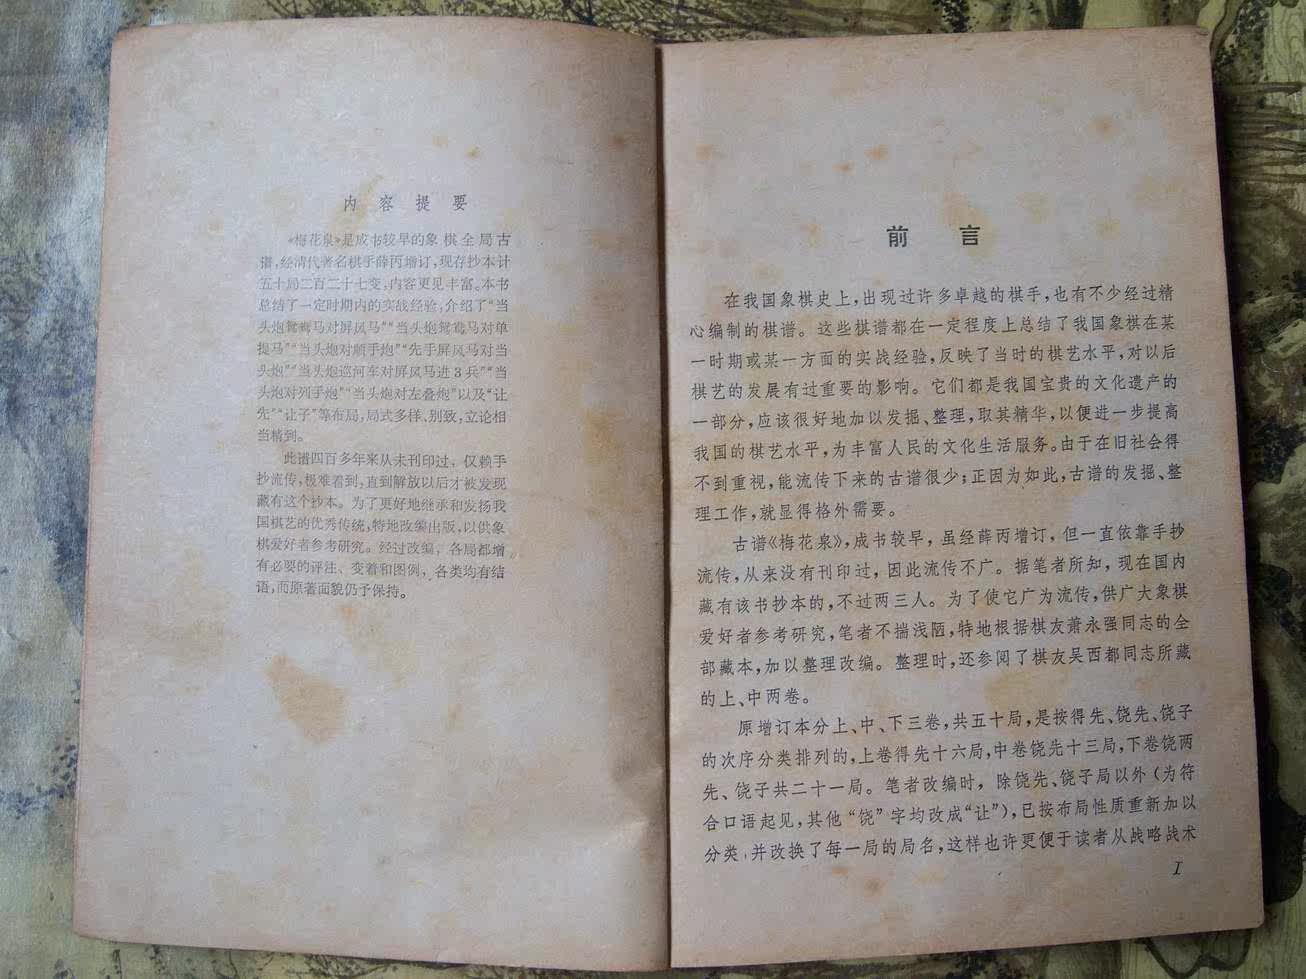 内容提要
《梅花泉》是成书较早的象棋全局古
谱，经清代著名棋手薛丙增订，现存抄本计
五十局二百二十七变，内容更见丰富。本书
总结了一定时期内的实战经验，介绍了“当
头炮鸳鸯马对屏风马”“当头炮鸳鸯马对单
提马”“当头炮对顺手炮”“先手屏风马对当
头炮”“当头炮巡河车对屏风马进3兵”“当
头炮对列手炮”“当头炮对左叠炮”以及“让
先”“让子”等布局，局式多样、别致，立论相
当精到。
此谱四百多年来从未刊印过，仅赖手
抄流传，极难看到，直到解放以后才被发现
藏有这个抄本。为了更好地继承和发扬我
国棋艺的优秀传统，特地改编出版，以供象
棋爱好者参考研究。经过改编，各局都增
有必要的评注、变着和图例，各类均有结
语，而原著面貌仍予保持。
前言
在我国象棋史上，出现过许多卓越的棋手，也有不少经过精
心编制的棋谱。这些棋谱都在一定程度上总结了我国象棋在某
一时期或某一方面的实战经验，反映了当时的棋艺水平，对以后
棋艺的发展有过重要的影响。它们都是我国宝贵的文化遗产的
一部分，应该很好地加以发掘、整理，取其精华，以便进一步提高
我国的棋艺水平，为丰富人民的文化生活服务。由于在旧社会得
不到重视，能流传下来的古谱很少；正因为如此，古谱的发掘、整
理工作，就显得格外需要。
古谱《梅花泉》，成书较早，虽经薛丙增订，但一直依靠手抄
流传，从来没有刊印过，因此流传不广。据笔者所知，现在国内
藏有该书抄本的，不过两三人。为了使它广为流传，供广大象棋
爱好者参考研究，笔者不揣浅陋，特地根据棋友萧永强同志的全
部藏本，加以整理改编。整理时，还参阅了棋友吴西都同志所藏
的上、中两卷。
原增订本分上、中、下三卷，共五十局，是按得先、饶先、饶子
的次序分类排列的，上卷得先十六局，中卷饶先十三局，下卷饶两
先、饶子共二十一局。笔者改编时，除饶先、饶子局以外（为符
合口语起见，其他“饶”字均改成“让”），已按布局性质重新加以
分类，并改换了每一局的局名，这样也许更便于读者从战略战术
I